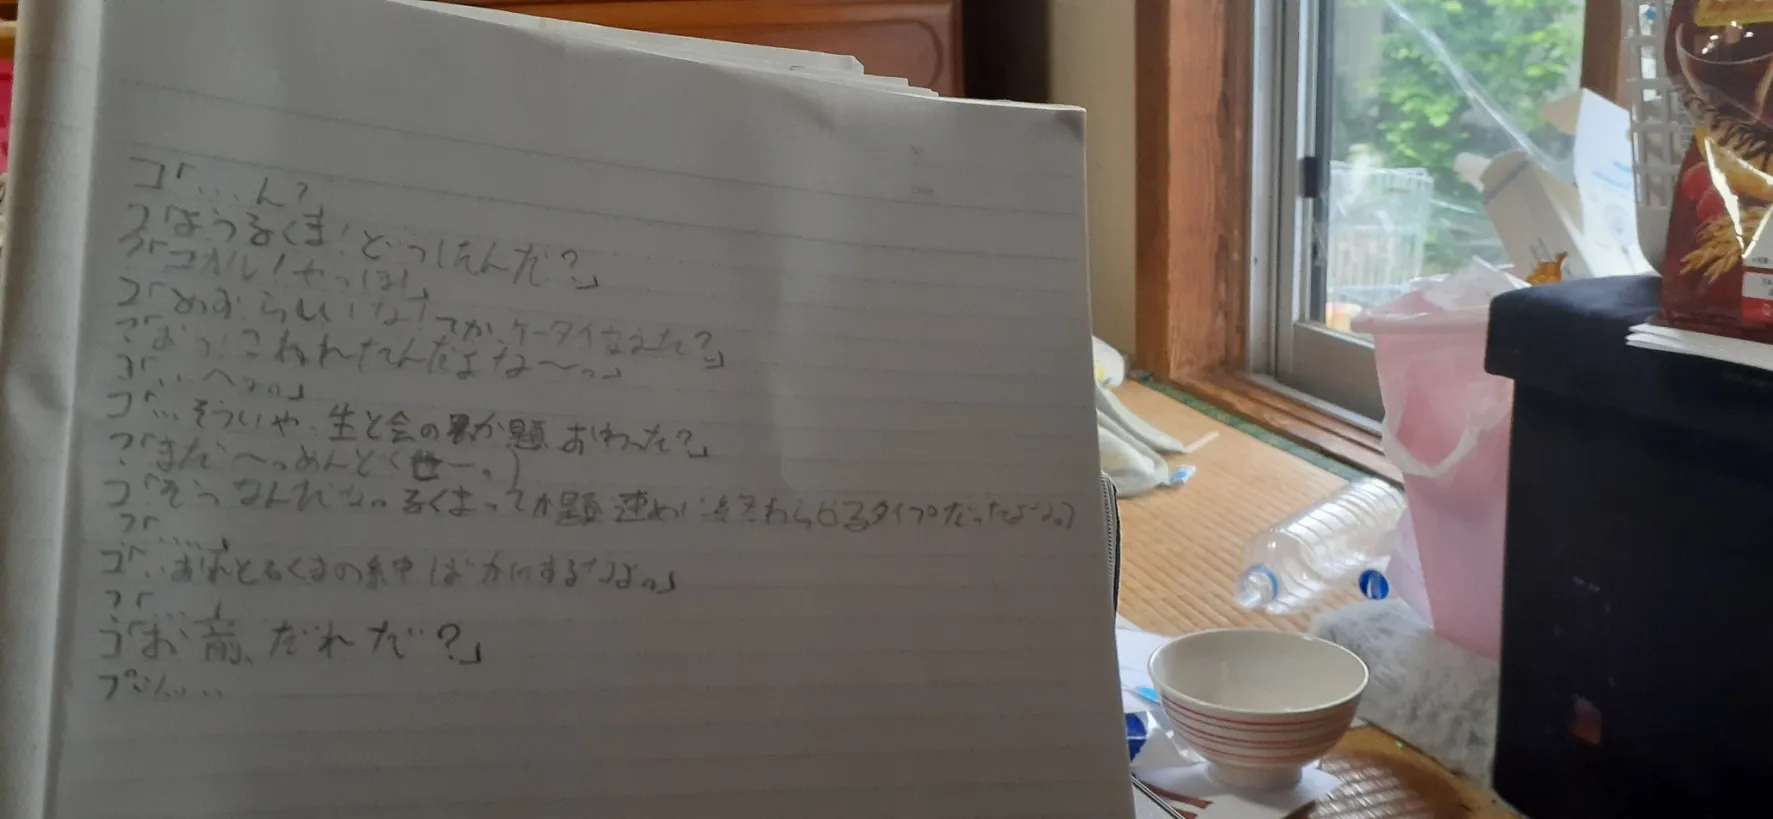 コ「…ん?」
コ「ようるくま!どうしたんだ?」
?「コカル!やっほ!」
コ「めずらしいな!てかケータイ変えた?」
?「おう!こわれたんだよな〜。」
コ「…へー。」
コ「…そういや、生と会のか題おわった?」
?「まだ〜。めんどくせー。」
コ「そうなんだな。るくまってか題速めに終わらせるタイプだったよな。」
?「……」
コ「…おれとるくまの絆ばかにするなよ。」
?「……」
コ「お前、だれだ?」
プツッ……